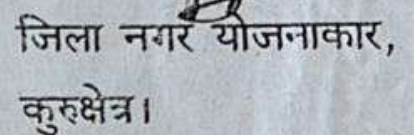 जिला नगर योजनाकार,
कुरुक्षेत्र।